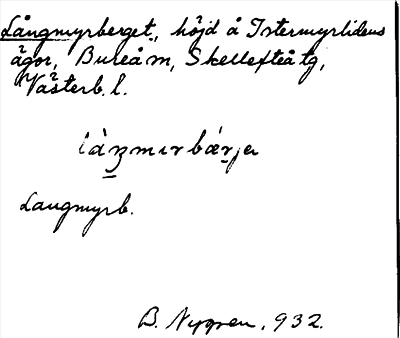 Långmyrberget, höjd å Istermyrlidens
ägor, Bureå sn, Skellefteå tg,
Västerb. l.
làŋmιrbærjə
Långmyrb.
B. Nygren, 932.